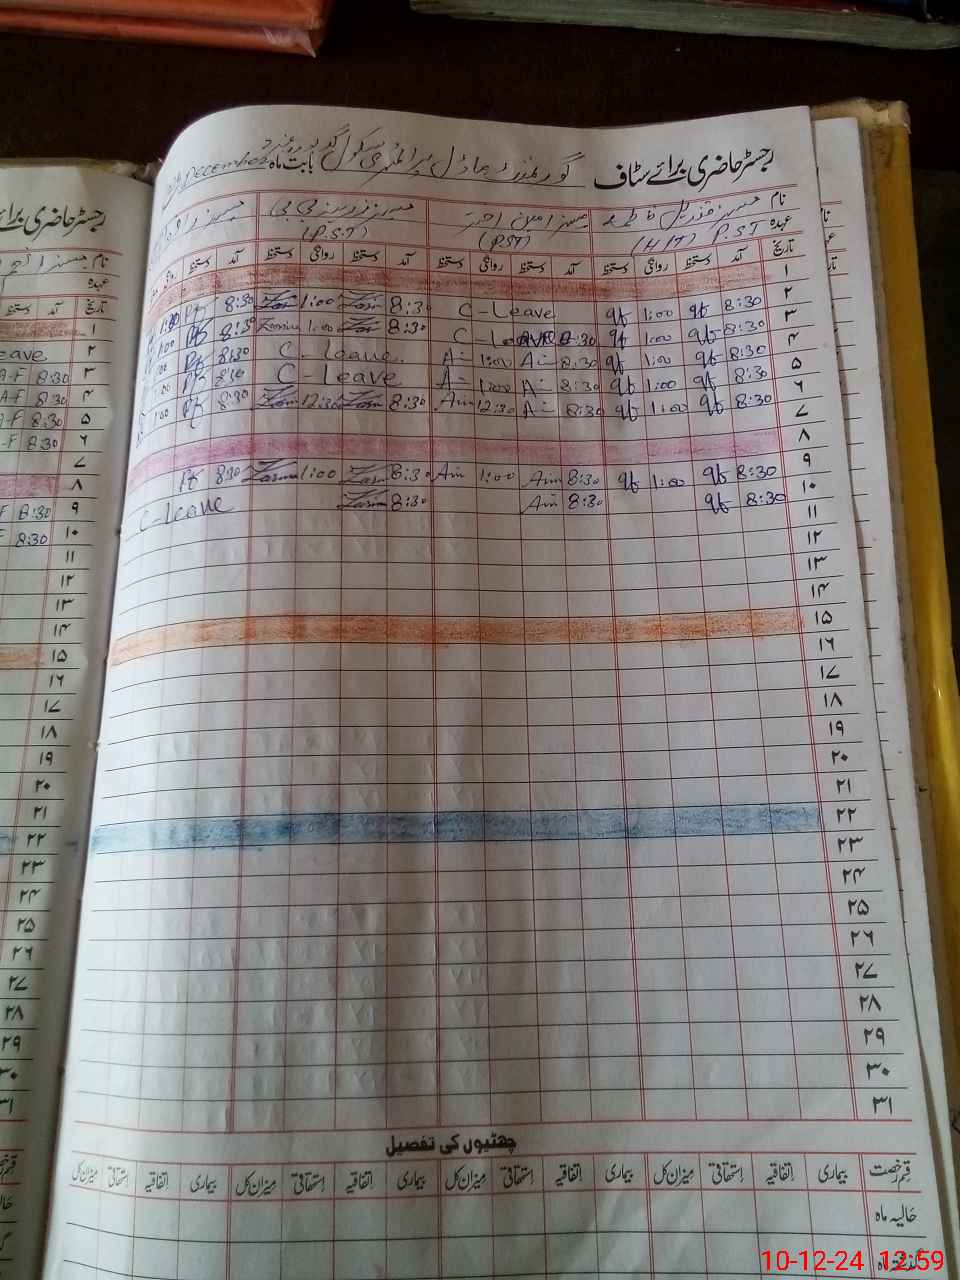 رجسٹر حاضری برائے سٹاف گورنمنٹ ماڈل پرائمری سکول بابت ماہ December
نام مسز قندیل فاطمہ مسز امین اختر مسز زرینہ بی بی مسز
عہدہ P.S.T (H/T) (P.S.T) (P.S.T)
تاریخ آمد دستخط روانگی دستخط آمد دستخط روانگی دستخط آمد دستخط روانگی دستخط آمد دستخط روانگی
۱
۲ 8:30 qf 1:00 qf C-Leave 8:30 Zarin 1:00 Zarin 8:30 1:00
۳ 8:30 qf 1:00 qf C-Leave 8:30 8:30 Zarin 1:00 Zarina 8:30 1:00
۴ 8:30 qf 1:00 qf 8:30 A- 1:00 A- C-Leave 8:30 1:00
۵ 8:30 qf 1:00 qf 8:30 A- 1:00 A- C-Leave 8:30 1:00
۶ 8:30 qf 1:00 qf 8:30 A- 12:30 Ain 8:30 Zarin 12:30 Zarin 8:30 1:00
۷
۸
۹ 8:30 qf 1:00 qf 8:30 Ain 1:00 Ain 8:30 Zarin 1:00 Zarina 8:30
۱۰ 8:30 qf 8:30 Ain 8:30 Zarin C-Leave
۱۱
۱۲
۱۳
۱۴
۱۵
۱۶
۱۷
۱۸
۱۹
۲۰
۲۱
۲۲
۲۳
۲۴
۲۵
۲۶
۲۷
۲۸
۲۹
۳۰
۳۱
چھٹیوں کی تفصیل
قسم رخصت بیماری اتفاقیہ استحقاقی میزان کل بیماری اتفاقیہ استحقاقی میزان کل بیماری اتفاقیہ استحقاقی میزان کل بیماری اتفاقیہ استحقاقی میزان کل
حالیہ ماہ
گذشتہ ماہ
رجسٹر حاضری برائے
نام مسز
عہدہ
تاریخ آمد دستخط
۱
۲ eave
۳ 8:30 A-F
۴ 8:30 A-F
۵ 8:30 A-F
۶ 8:30 -F
۷
۸
۹ 8:30 F
۱۰ 8:30 F
۱۱
۱۲
۱۳
۱۴
۱۵
۱۶
۱۷
۱۸
۱۹
۲۰
۲۱
۲۲
۲۳
۲۴
۲۵
۲۶
۲۷
۲۸
۲۹
۳۰
۳۱
قسم رخصت
10-12-24 12:59